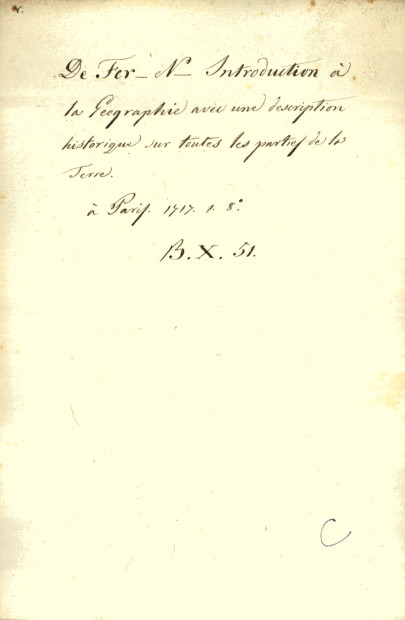 De Fer_ N_ Introduction à
la Geographie avec une description
historique sur toutes les parties de la
Terre.
à Paris. 1717. 1. 8°.
B. X. 51.
C